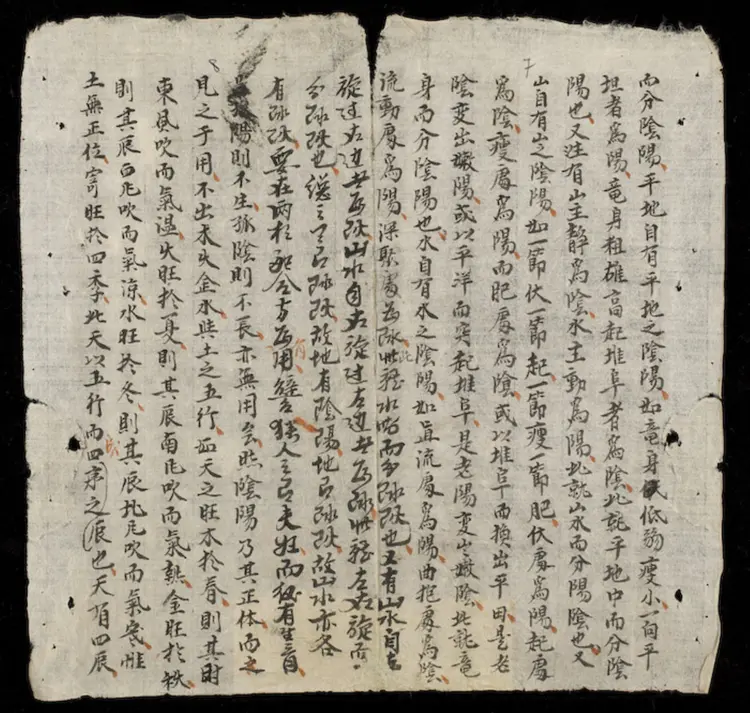 而分陰陽平地自有平地之陰陽如竜身低弱瘦小一向平
坦者為陽竜身粗雄高起堆阜者為陰此就平地中而分陰
陽也又注有山主靜為陰水主動為陽此就山水而分陽陰也又
山自有山之陰陽如一節伏一節起一節瘦一節肥伏處為陽起處
為陰瘦處為陽而肥處為陰或以堆阜而換出平田是老
陰变出嫩陽或以平洋而突起堆阜是老陽变出嫩陰此就竜
身而分陰陽也水自有水之陰陽如直流處為陽曲抱處為陰
流動處為陽深聚處為阴此就水而分阴阳也又有山水自右
旋过左边者為阳山水自左旋过右边者為阴此左右旋而
分阴阳也総之天有阴阳故地有陰陽地有阴阳故山水亦各
有阴阳要在两相配合方為用譬猶人之有夫妇而後有生育
陽則不生孤陰則不長亦無用矣然陰陽乃其正体而之
見之于用不出木火金水與土之五行如天之旺木於春則其时
東風吹而氣温火旺於夏則其辰南风吹而氣熱金旺於秋
則其辰西风吹而氣涼水旺於冬則其辰北风吹而氣寒惟
土無正位寄旺於四季此天以五行而四序之辰也天有四辰